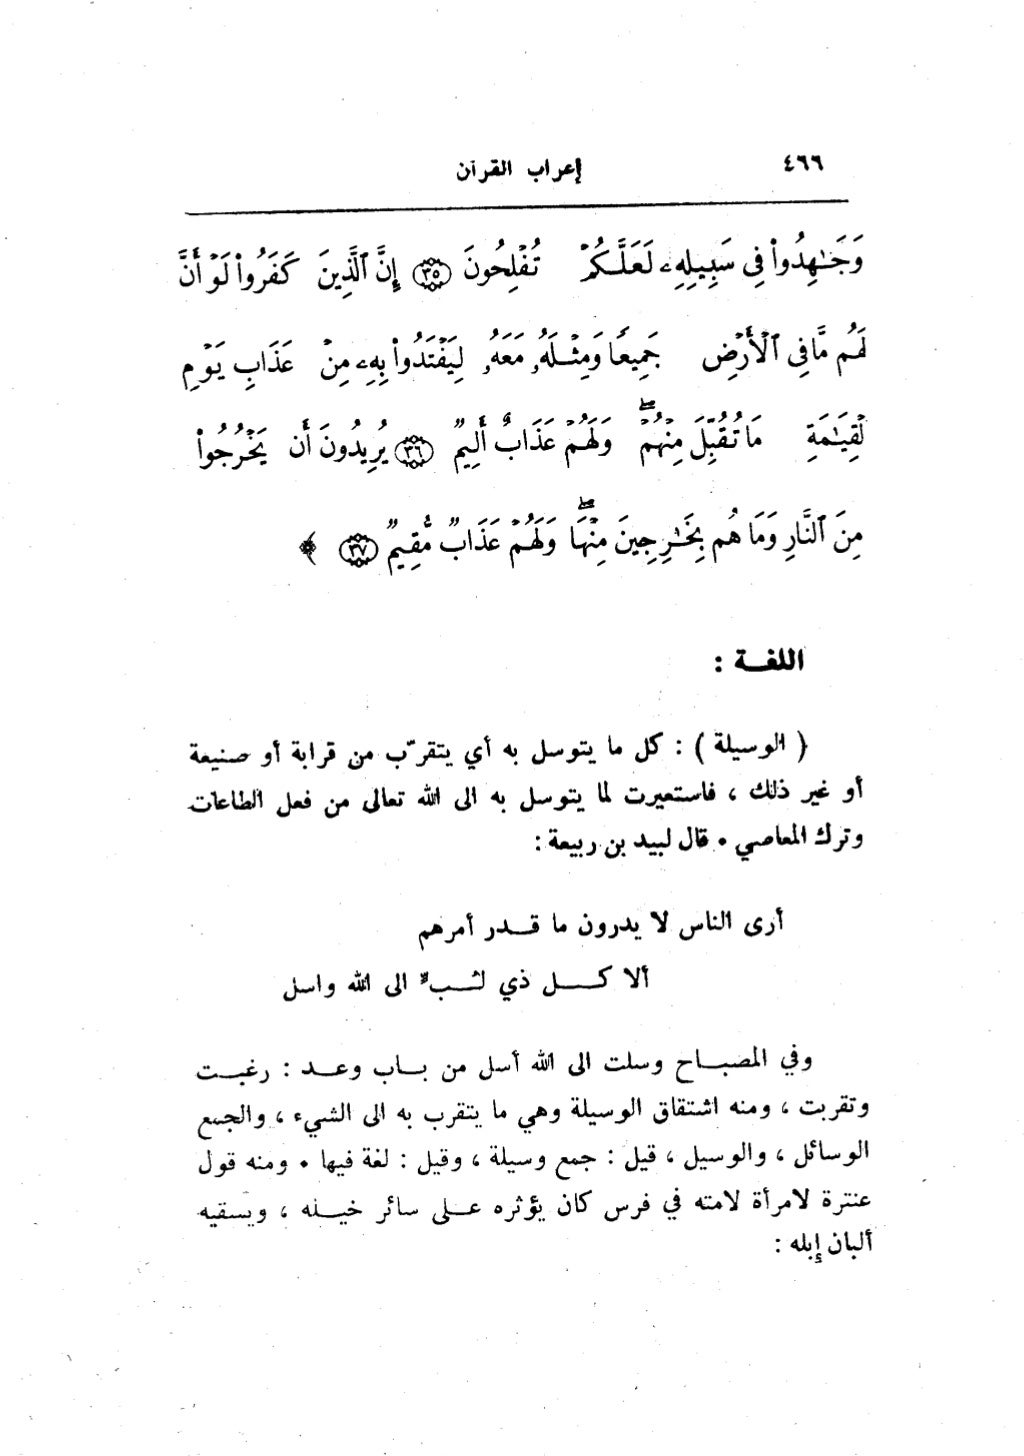 ٤٦٦ إعراب القرآن
وَجَٰهِدُوا۟ فِى سَبِيلِهِۦ لَعَلَّكُمْ تُفْلِحُونَ ٣٥ إِنَّ ٱلَّذِينَ كَفَرُوا۟ لَوْ أَنَّ
لَهُم مَّا فِى ٱلْأَرْضِ جَمِيعًا وَمِثْلَهُۥ مَعَهُۥ لِيَفْتَدُوا۟ بِهِۦ مِنْ عَذَابِ يَوْمِ
لْقِيَٰمَةِ مَا تُقُبِّلَ مِنْهُمْ ۖ وَلَهُمْ عَذَابٌ أَلِيمٌ ٣٦ يُرِيدُونَ أَن يَخْرُجُوا۟
مِنَ ٱلنَّارِ وَمَا هُم بِخَٰرِجِينَ مِنْهَا ۖ وَلَهُمْ عَذَابٌ مُّقِيمٌ ٣٧ ﴾
اللغة :
( الوسيلة ) : كل ما يتوسل به أي يتقرّب من قرابة أو صنيعة
أو غير ذلك ، فاستعيرت لما يتوسل به الى الله تعالى من فعل الطاعات
وترك المعاصي . قال لبيد بن ربيعة :
أرى الناس لا يدرون ما قدر أمرهم
ألا كل ذي لبٍّ الى الله واسل
وفي المصباح وسلت الى الله أسل من باب وعد : رغبت
وتقربت ، ومنه اشتقاق الوسيلة وهي ما يتقرب به الى الشيء ، والجمع
الوسائل ، والوسيل ، قيل : جمع وسيلة ، وقيل : لغة فيها . ومنه قول
عنترة لامرأة لامته في فرس كان يؤثره على سائر خيله ، ويسقيه
ألبان إبله :